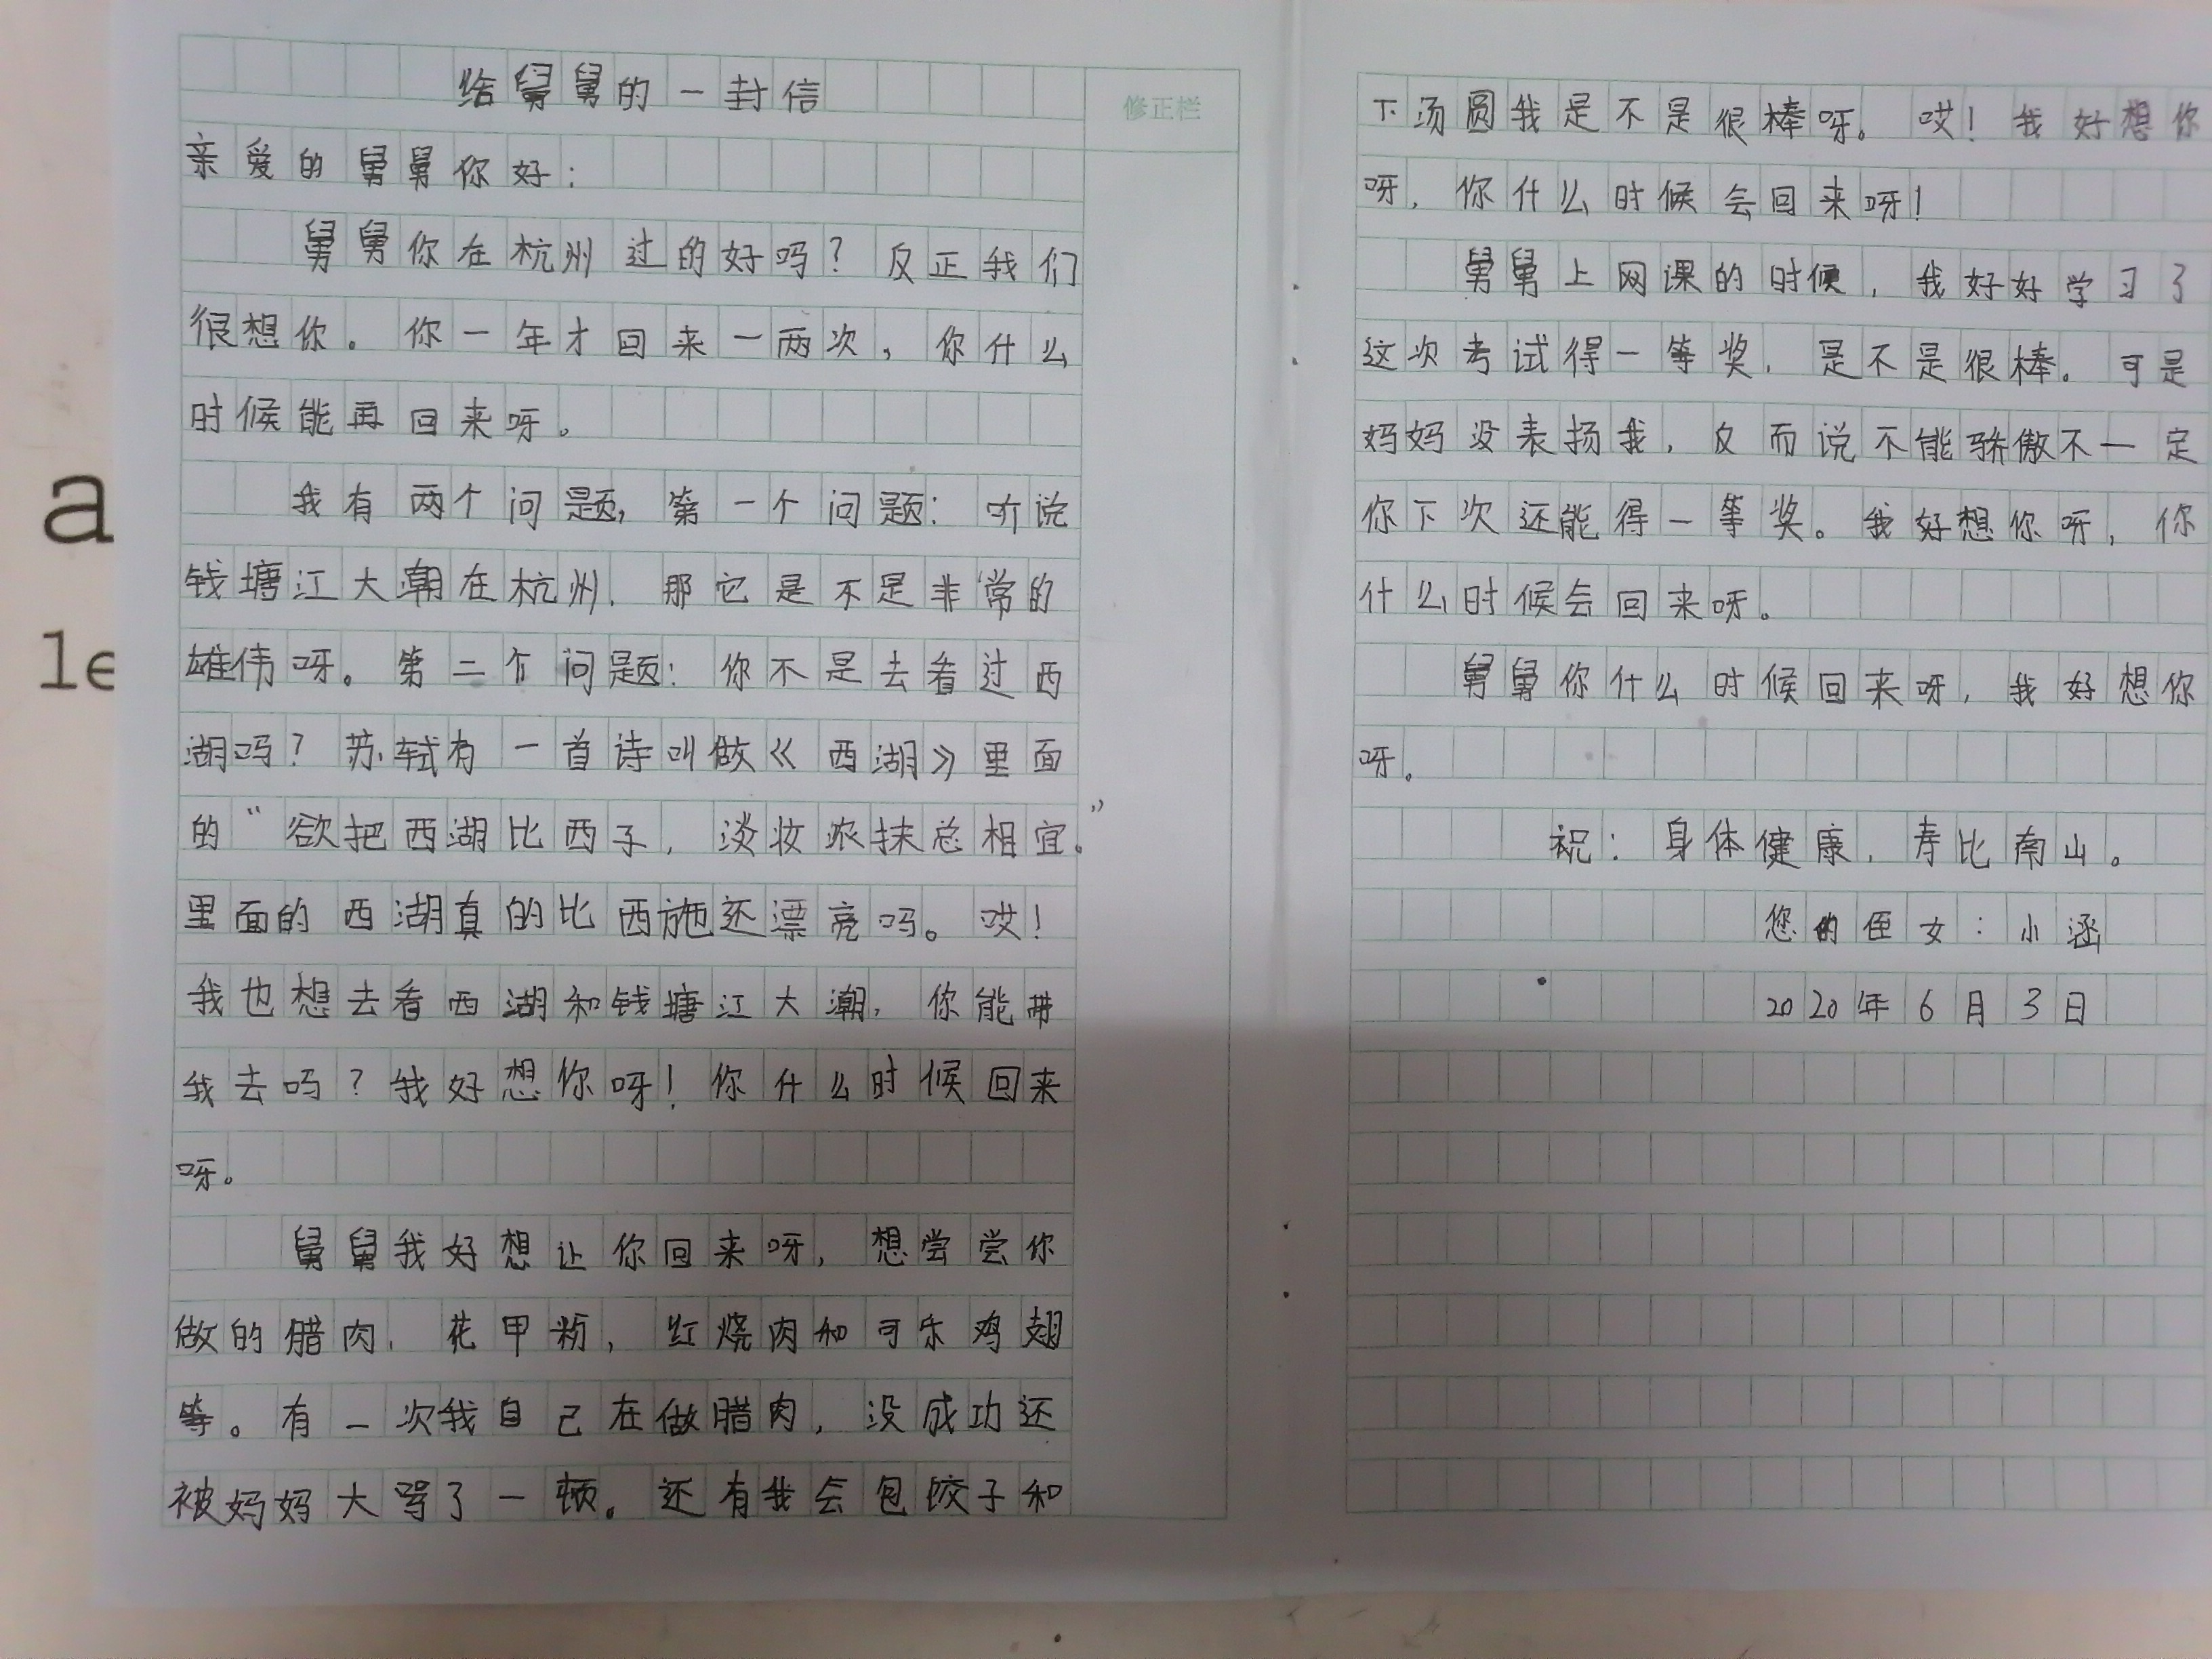 给舅舅的一封信
修正栏
亲爱的舅舅你好：
舅舅你在杭州过的好吗？反正我们
很想你。你一年才回来一两次，你什么
时候能再回来呀。
我有两个问题，第一个问题：听说
钱塘江大潮在杭州，那它是不是非常的
雄伟呀。第二个问题：你不是去看过西
湖吗？苏轼有一首诗叫做《西湖》里面
的“欲把西湖比西子，淡妆浓抹总相宜。”
里面的西湖真的比西施还漂亮吗。哎！
我也想去看西湖和钱塘江大潮，你能带
我去吗？我好想你呀！你什么时候回来
呀。
舅舅我好想让你回来呀，想尝尝你
做的腊肉，花甲粉，红烧肉和可乐鸡翅
等。有一次我自己在做腊肉，没成功还
被妈妈大骂了一顿。还有我会包饺子和
下汤圆我是不是很棒呀。哎！我好想你
呀，你什么时候会回来呀！
舅舅上网课的时候，我好好学习了
这次考试得一等奖，是不是很棒。可是
妈妈没表扬我，反而说不能骄傲不一定
你下次还能得一等奖。我好想你呀，你
什么时候会回来呀。
舅舅你什么时候回来呀，我好想你
呀。
祝：身体健康，寿比南山。
您的侄女：小涵
2020年6月3日
a
le